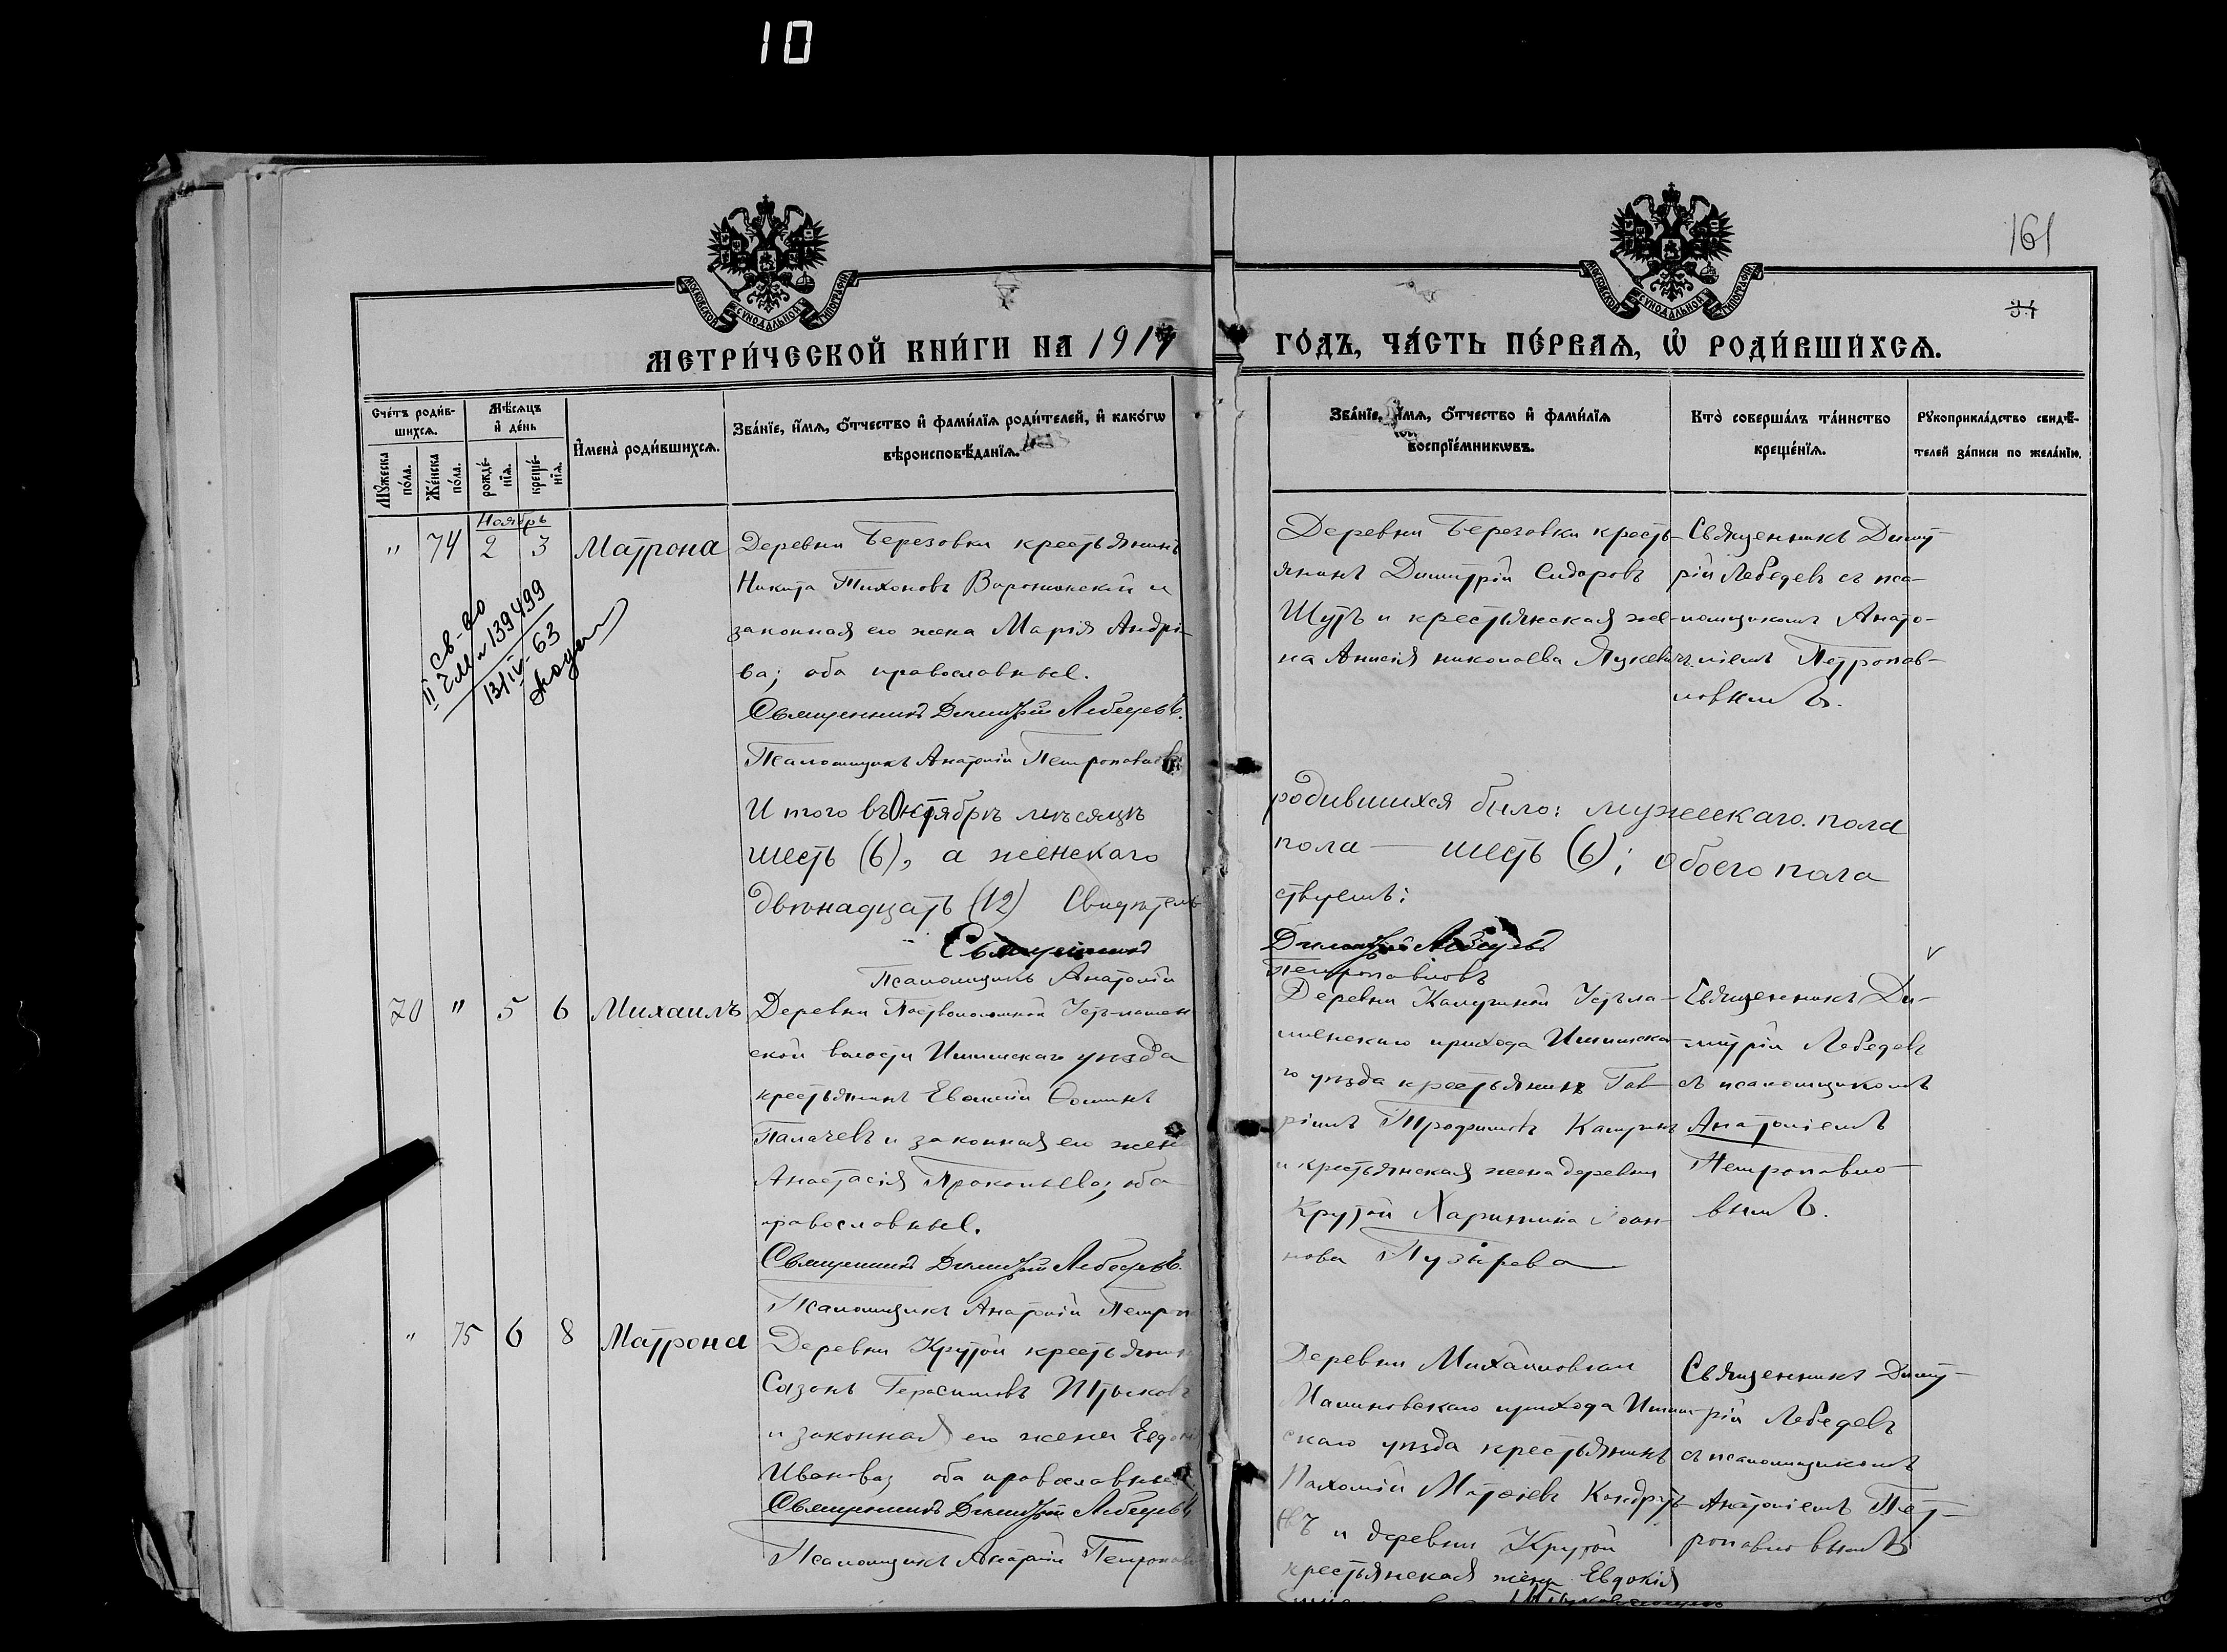 10
161
34
МОСКОВСКОЙ СУНОДАЛЬНОЙ ТИПОГРАФІИ
МОСКОВСКОЙ СУНОДАЛЬНОЙ ТИПОГРАФІИ
МЕТРИ́ЧЕСКОЙ КНИ́ГИ НА 1914 ГО́ДЪ, ЧА́СТЬ ПЕ́РВАѦ, Ѡ РОДИ́ВШИХСѦ.
Сче́тъ роди́в-
шихсѧ.
Мѣ́сѧцъ
и҆ де́нь
Му́жеска по́ла.
Же́нска по́ла.
рожде́-
нїѧ.
креще́-
нїѧ.
И҆мена̀ роди́вшихсѧ.
Зва́нїе, и҆́мѧ, ѻ҆́тчество и҆ фами́лїѧ роди́телей, и҆ како́гѡ
вѣроисповѣ́данїѧ.
Зва́нїе, и҆́мѧ, ѻ҆́тчество и҆ фами́лїѧ
воспрїе́мникѡвъ.
Кто̀ соверша́лъ та́инство
креще́нїѧ.
Рꙋкоприкла́дство свидѣ́-
телей за́писи по жела́нїю.
Ноябрь
" 74 2 3 Матрона
Деревни Березовки крестьянинъ
Никита Тихоновъ и
законная его жена Марія Андре-
ва; оба православные.
Священникъ Димитрій Лебедевъ.
Псаломщикъ Анатолій Петропавловъ
Деревни Березовки кресть-
янинъ Димитрій Сидоровъ
Шутъ и крестьянская же-
на Анисія Николаева
Священникъ Димит-
рій Лебедевъ съ пса-
ломщикомъ Анато-
ліемъ Петропав-
ловымъ.
св-во
II ЕМ № 139499
13/IV-63
Итого въ Октябрѣ мѣсяцѣ родившихся было: мужескаго пола
шесть (6), а женскаго пола — шесть (6); обоего пола
двѣнадцать (12) Свидѣтель ствуемъ:
Священникъ Димитрій Лебедевъ
Псаломщикъ Анатолій Петропавловъ
70 " 5 6 Михаилъ
Деревни
ской волости Ишимскаго уѣзда
крестьянинъ Евфимій Ѳоминъ
Палачевъ и законная его жена
Анастасія Прокопьева; оба
православные.
Священникъ Димитрій Лебедевъ.
Псаломщикъ Анатолій Петроп
Деревни Калугиной Устьла-
менскаго прихода Ишимска-
го уѣзда крестьянинъ Гав-
ріилъ Трофимовъ Калугинъ
и крестьянская жена деревни
Крутой Харитина Іоан-
нова Пузырева
Священникъ Ди-
митрій Лебедевъ
съ псаломщикомъ
Анатоліемъ
Петропавло-
вымъ.
" 75 6 8 Матрона
Деревни Крутой крестьянинъ
Сазонъ Герасимовъ
и законная его жена Евдокія
Иванова; оба православные
Священникъ Димитрій Лебедевъ
Псаломщикъ Анатолій Петропавл
Деревни Михайловки
Малиновскаго прихода Ишим-
скаго уѣзда крестьянинъ
Пахомій Кондрать-
евъ и деревни Крутой
крестьянская жена Евдокія
Священникъ Димит-
рій Лебедевъ
съ псаломщикомъ
Анатоліемъ Пет-
ропавловымъ